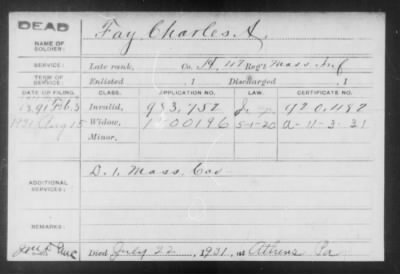 DEAD
NAME OF SOLDIER: Fay Charles A.
SERVICE: Late rank, Co. H, 47 Reg't Mass. Inf
TERM OF SERVICE: Enlisted , 1 Discharged , 1
DATE OF FILING. CLASS. APPLICATION NO. LAW. CERTIFICATE NO.
1891 Feb. 3 Invalid, 983,752 920,482
1921 Aug 15 Widow, 1 5-1-20 a-11-3-21
Minor,
ADDITIONAL SERVICES: D. 1, Mass. Cav
REMARKS:
Died July 22, 1921, at Athens Pa